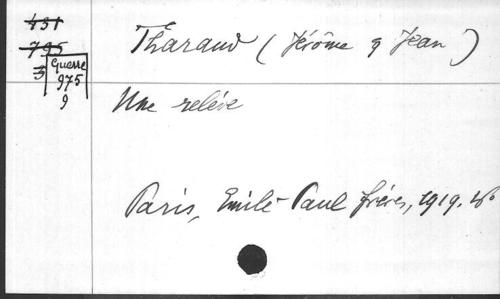 431
795
3
Guerre
975
9
Tharaud (Jérôme & Jean)
Une relève
Paris, Emile-Paul frères, 1919.